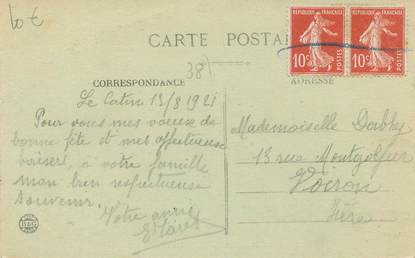 lot
CARTE POSTA
RÉPUBLIQUE FRANÇAISE
10c POSTES
RÉPUBLIQUE FRANÇAISE
10c POSTES
38
CORRESPONDANCE
ADRESSE
Le 13/8 1921
Pour vous mes vœux de
bonne fête et mes affectueux
baisers, à votre famille
mon bien respectueux
souvenir.
Votre amie
Mademoiselle Dabby
13 rue Montgolfier
Voiron
Isère
B&G